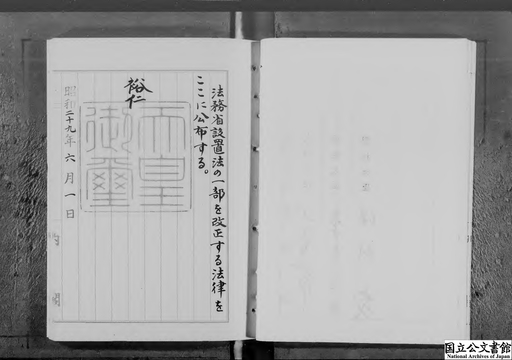 法務省設置法の一部を改正する法律を
ここに公布する。
裕仁
天皇
御璽
昭和二十九年六月一日
国立公文書館
National Archives of Japan